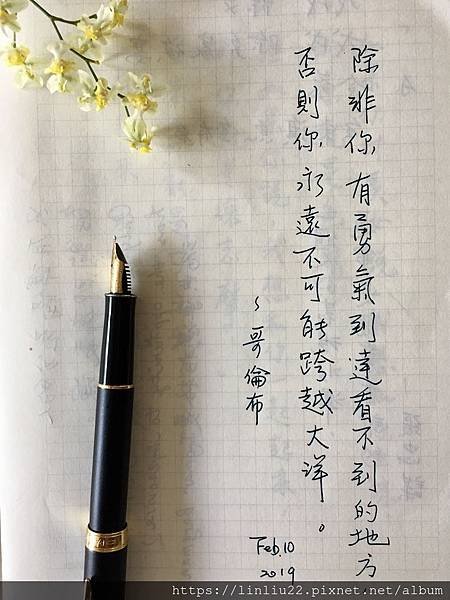 除非你有勇氣到達看不到的地方
否則你永遠不可能跨越大洋。
~哥倫布
Feb.10
2019
https://linliu22.pixnet.net/album